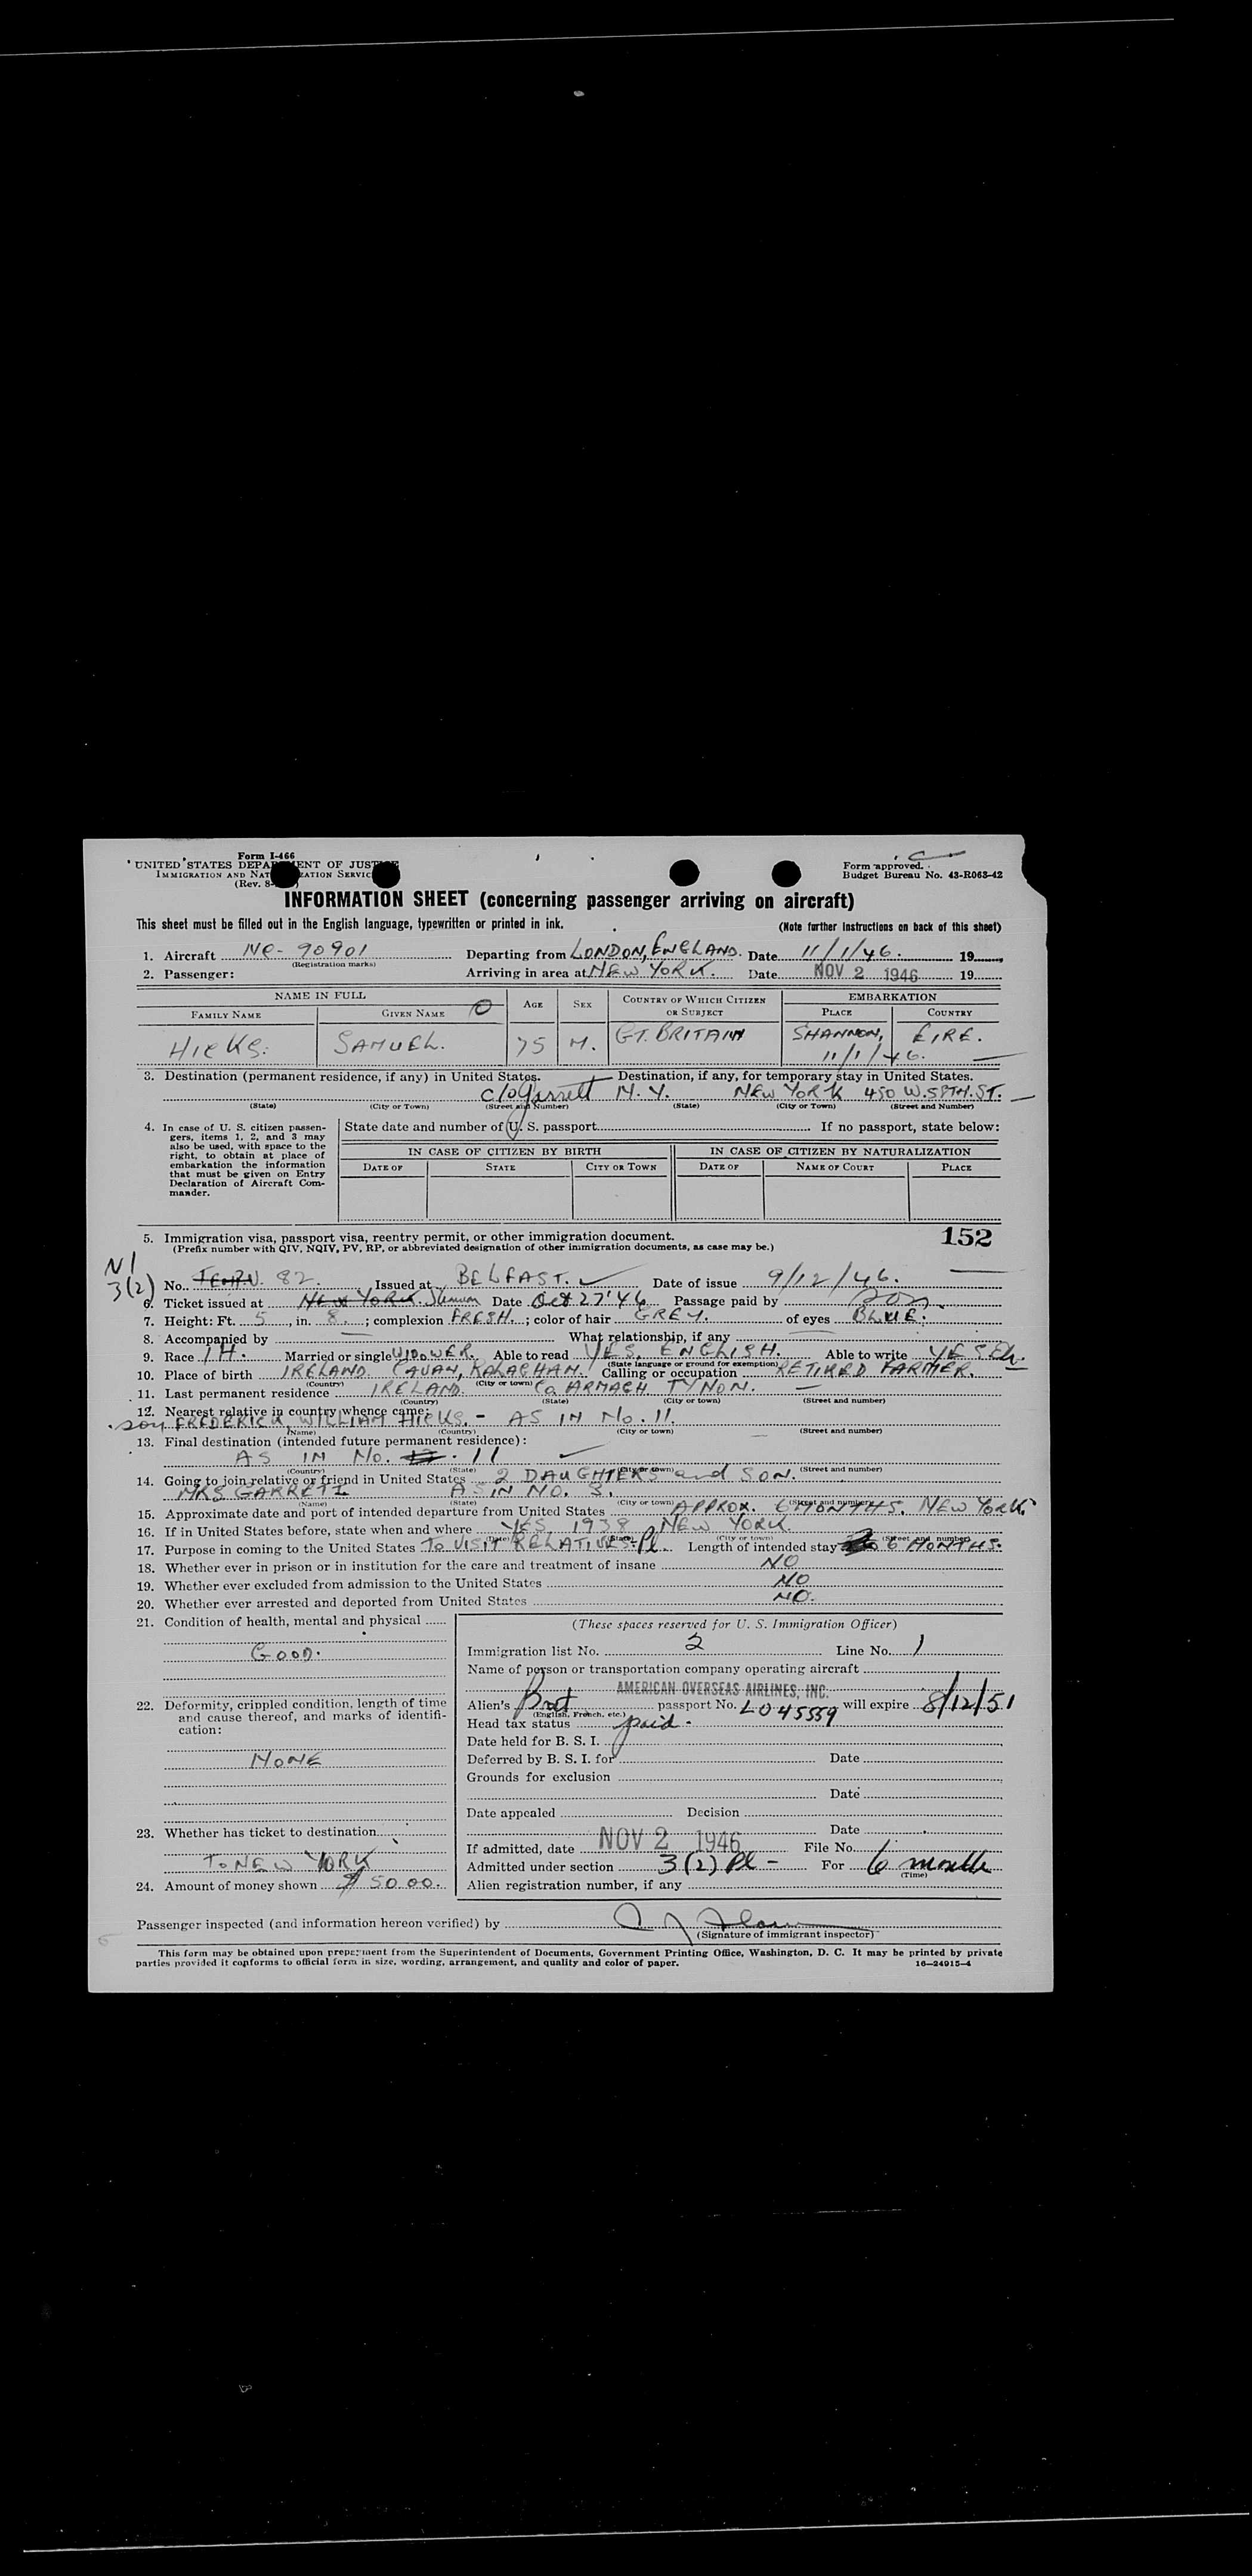 Form I-466
UNITED STATES DEPARTMENT OF JUSTICE
IMMIGRATION AND NATURALIZATION SERVICE
(Rev. 8-
Form approved.
Budget Bureau No. 43-R063-42
INFORMATION SHEET (concerning passenger arriving on aircraft)
This sheet must be filled out in the English language, typewritten or printed in ink. (Note further instructions on back of this sheet)
1. Aircraft NC-90901 Departing from LONDON, ENGLAND. Date 11/1/46. 19
(Registration marks)
2. Passenger: Arriving in area at NEW YORK. Date NOV 2 1946 19
NAME IN FULL AGE SEX COUNTRY OF WHICH CITIZEN OR SUBJECT EMBARKATION
FAMILY NAME GIVEN NAME PLACE COUNTRY
HICKS. SAMUEL. 75 M. GT. BRITAIN SHANNON, EIRE.
11/1/46.
3. Destination (permanent residence, if any) in United States. Destination, if any, for temporary stay in United States.
c/o Garrett N.Y. NEW YORK 450 W. 58TH. ST.
(State) (City or Town) (Street and Number) (State) (City or Town) (Street and Number)
4. In case of U. S. citizen passengers, items 1, 2, and 3 may also be used, with space to the right, to obtain at place of embarkation the information that must be given on Entry Declaration of Aircraft Commander.
State date and number of U. S. passport If no passport, state below:
IN CASE OF CITIZEN BY BIRTH IN CASE OF CITIZEN BY NATURALIZATION
DATE OF STATE CITY OR TOWN DATE OF NAME OF COURT PLACE
5. Immigration visa, passport visa, reentry permit, or other immigration document. 152
(Prefix number with QIV, NQIV, PV, RP, or abbreviated designation of other immigration documents, as case may be.)
3(2) No. 82. Issued at BELFAST. Date of issue 9/12/46.
6. Ticket issued at NEW YORK. Date Oct 27 '46 Passage paid by son
7. Height: Ft. 5, in. 8.; complexion FRESH.; color of hair GREY. of eyes BLUE.
8. Accompanied by What relationship, if any
9. Race IH. Married or single WIDOWER. Able to read YES. ENGLISH. Able to write YES Eh.
(State language or ground for exemption)
10. Place of birth IRELAND. CAVAN, Calling or occupation RETIRED FARMER.
(Country) (City or town)
11. Last permanent residence IRELAND. Co ARMAGH TYNON.
(Country) (State) (City or town) (Street and number)
12. Nearest relative in country whence came:
son FREDERICK WILLIAM HICKS. - AS IN No. 11.
(Name) (Country) (City or town) (Street and number)
13. Final destination (intended future permanent residence):
AS IN No. 11
(Country) (State) (City or town) (Street and number)
14. Going to join relative or friend in United States 2 DAUGHTERS and SON.
MRS GARRETT AS IN NO. 3.
(Name) (State) (City or town) (Street and number)
15. Approximate date and port of intended departure from United States APPROX. 6 MONTHS. NEW YORK.
16. If in United States before, state when and where YES, 1938 NEW YORK.
(Date) (State) (City or town) (Street and number)
17. Purpose in coming to the United States TO VISIT RELATIVES. Pl. Length of intended stay 6 MONTHS.
18. Whether ever in prison or in institution for the care and treatment of insane NO
19. Whether ever excluded from admission to the United States NO
20. Whether ever arrested and deported from United States NO.
21. Condition of health, mental and physical
GOOD.
22. Deformity, crippled condition, length of time and cause thereof, and marks of identification:
NONE
23. Whether has ticket to destination
To NEW YORK
24. Amount of money shown $50.00.
(These spaces reserved for U. S. Immigration Officer)
Immigration list No. 2 Line No. 1
Name of person or transportation company operating aircraft
AMERICAN OVERSEAS AIRLINES, INC.
Alien's Brit passport No. L045559 will expire 8/12/51
(English, French, etc.)
Head tax status paid -
Date held for B. S. I.
Deferred by B. S. I. for Date
Grounds for exclusion
Date
Date appealed Decision
Date
If admitted, date NOV 2 1946 File No.
Admitted under section 3(2) Pl - For 6 months
(Time)
Alien registration number, if any
Passenger inspected (and information hereon verified) by
(Signature of immigrant inspector)
This form may be obtained upon prepayment from the Superintendent of Documents, Government Printing Office, Washington, D. C. It may be printed by private
parties provided it conforms to official form in size, wording, arrangement, and quality and color of paper. 16—24915-4